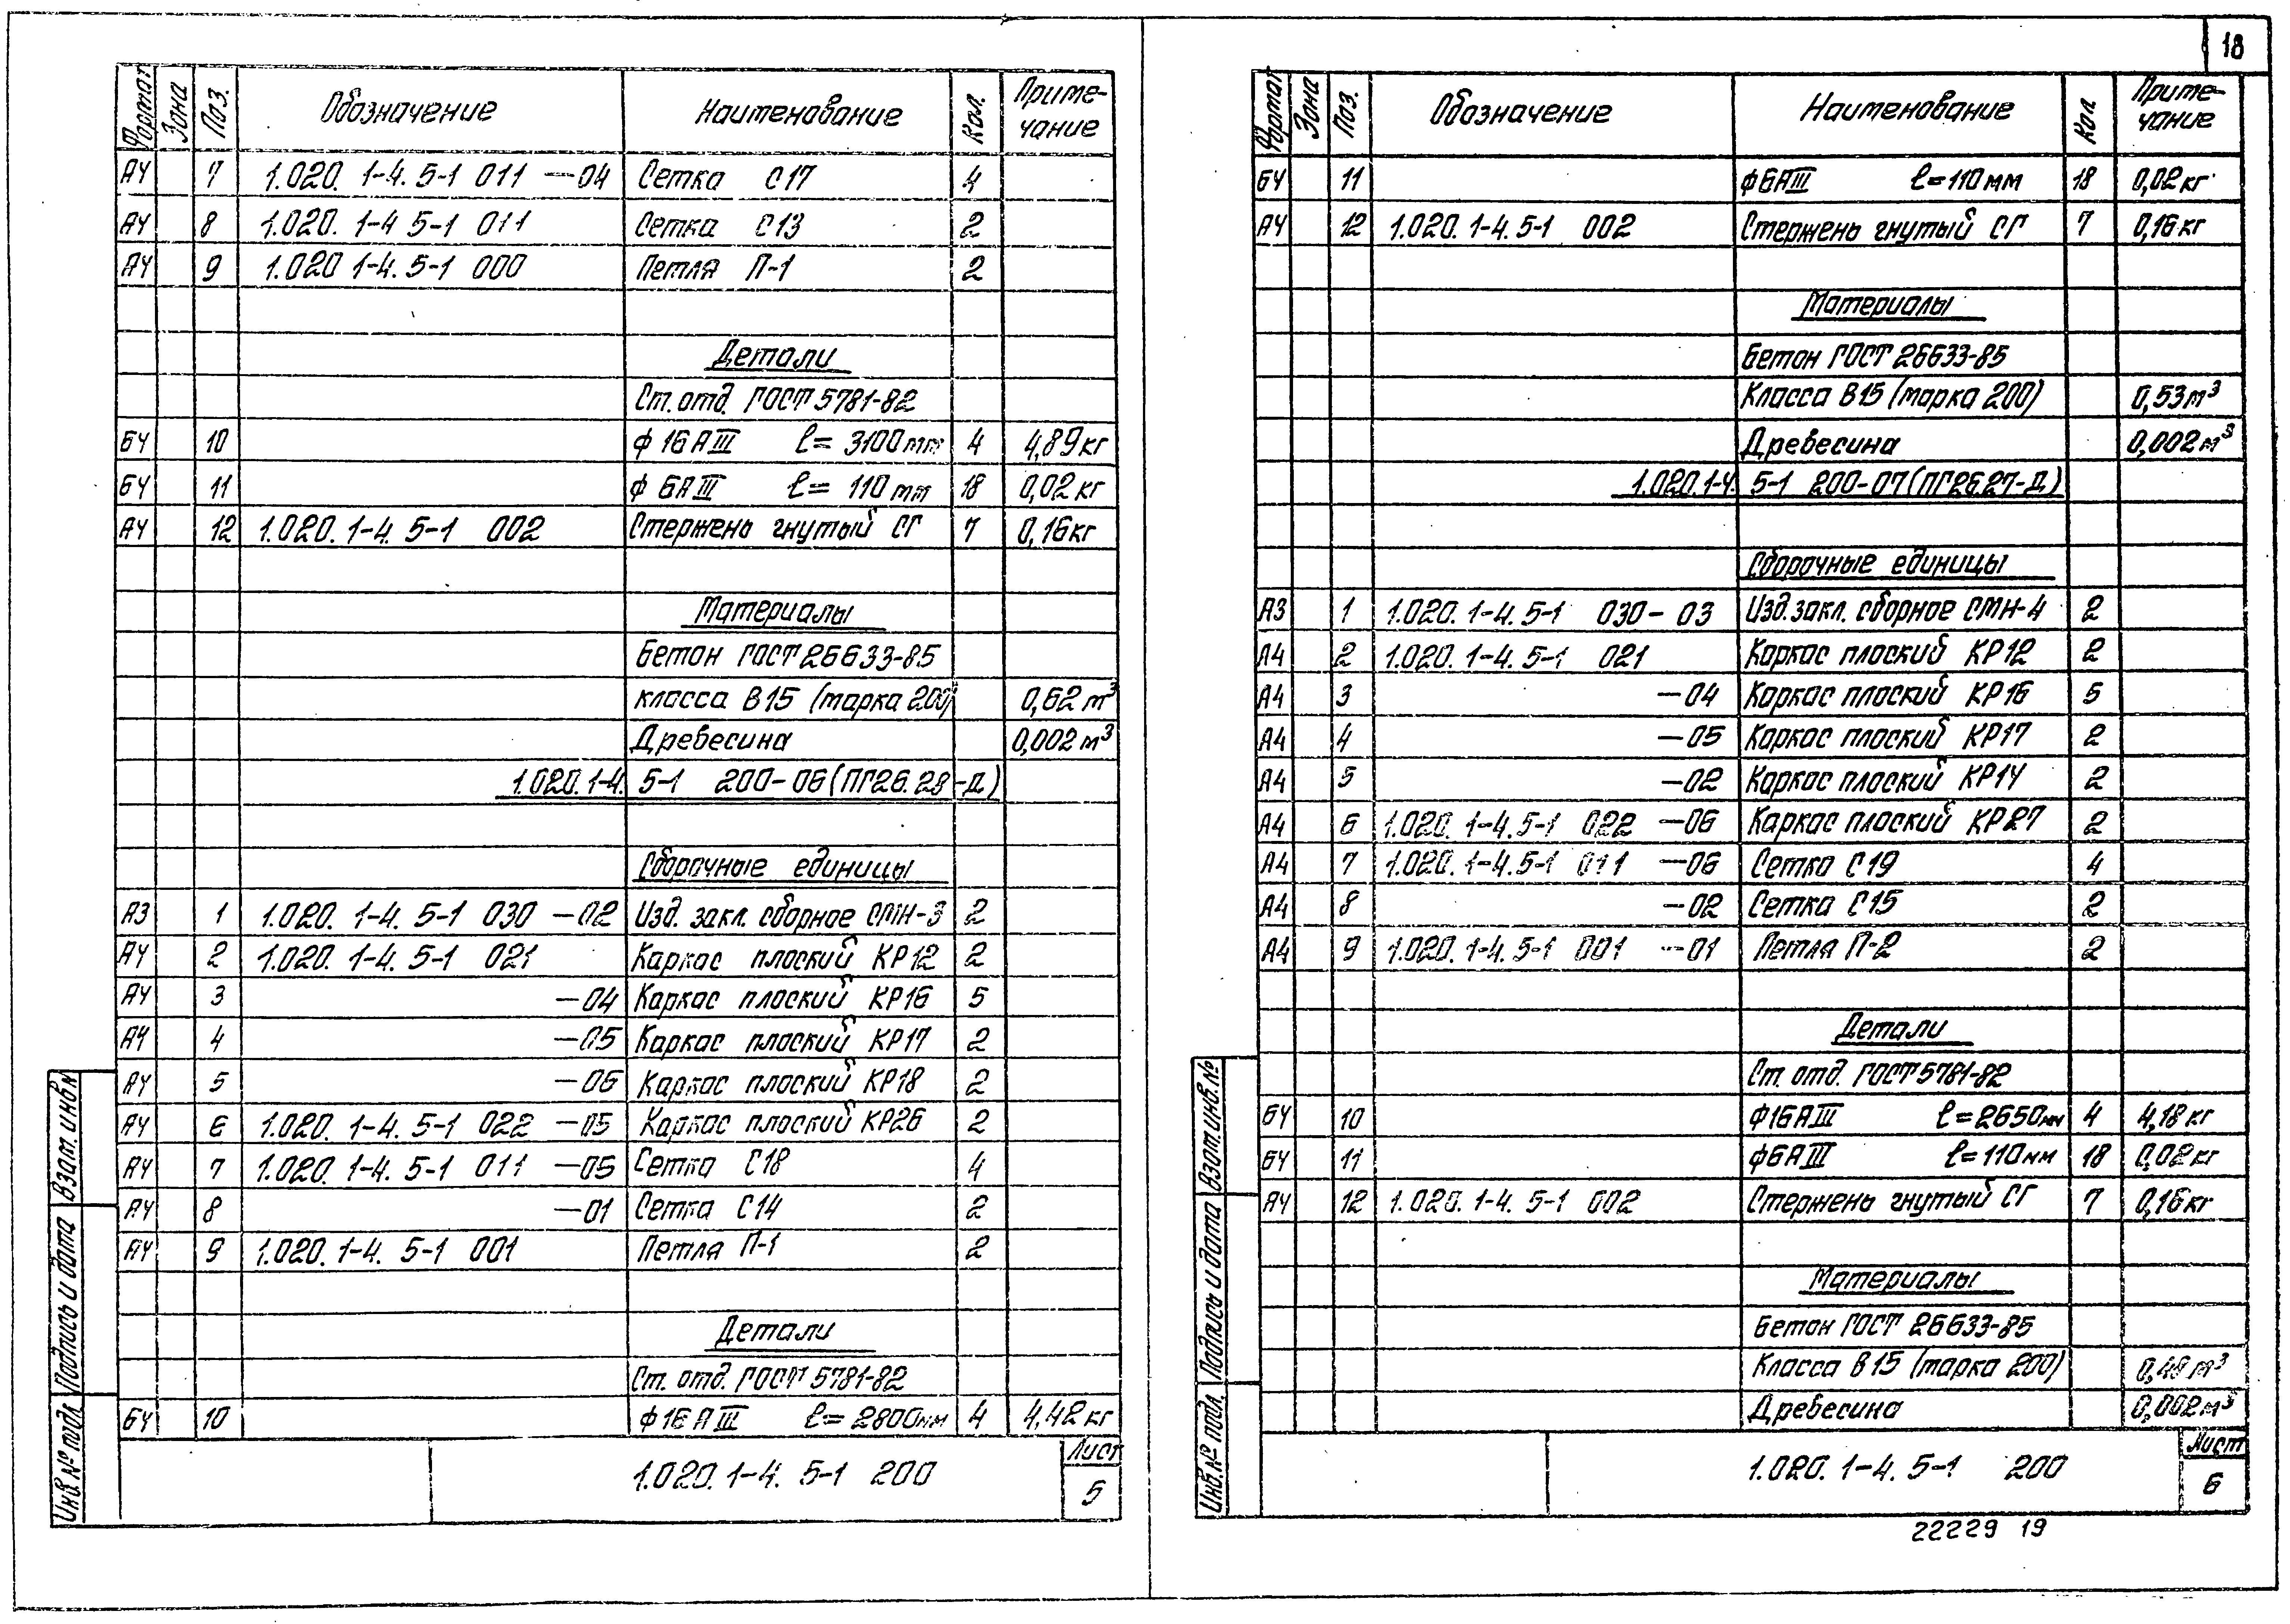 18
Формат Зона Поз. Обозначение Наименование Кол. Приме-чание
А4 7 1.020. 1-4. 5-1 011 -04 Сетка С17 4
А4 8 1.020. 1-4 5-1 011 Сетка С13 2
А4 9 1.020 1-4. 5-1 000 Петля П-1 2
Детали
Ст. отд. ГОСТ 5781-82
БЧ 10 ф 16 АIII ℓ= 3100мм 4 4,89кг
БЧ 11 ф 6АIII ℓ= 110 мм 18 0,02 кг
А4 12 1.020. 1-4. 5-1 002 Стержень гнутый СГ 7 0,16кг
Материалы
Бетон ГОСТ 26633-85
класса В15 (марка 200) 0,62 м³
Древесина 0,002 м³
1.020. 1-4. 5-1 200-06 (ПГ26.28-Д)
Сборочные единицы
А3 1 1.020. 1-4. 5-1 030 -02 Изд. закл. сборное СМН-3 2
А4 2 1.020. 1-4. 5-1 021 Каркас плоский КР12 2
А4 3 -04 Каркас плоский КР16 5
А4 4 -05 Каркас плоский КР17 2
А4 5 -06 Каркас плоский КР18 2
А4 6 1.020. 1-4. 5-1 022 -05 Каркас плоский КР26 2
А4 7 1.020. 1-4. 5-1 011 -05 Сетка С18 4
А4 8 -01 Сетка С14 2
А4 9 1.020. 1-4. 5-1 001 Петля П-1 2
Детали
Ст. отд. ГОСТ 5781-82
БЧ 10 ф16 АIII ℓ= 2800мм 4 4,42 кг
1.020. 1-4. 5-1 200
Лист
5
Взам. инв. №
Подпись и дата
Инв. № подл.
Формат Зона Поз. Обозначение Наименование Кол. Приме-чание
БЧ 11 ф6АIII ℓ=110 мм 18 0,02 кг
А4 12 1.020. 1-4. 5-1 002 Стержень гнутый СГ 7 0,16кг
Материалы
Бетон ГОСТ 26633-85
Класса В15 (марка 200) 0,53 м³
Древесина 0,002 м³
1.020. 1-4. 5-1 200-07 (ПГ26.27-Д)
Сборочные единицы
А3 1 1.020. 1-4. 5-1 030-03 Изд. закл. сборное СМН-4 2
А4 2 1.020. 1-4. 5-1 021 Каркас плоский КР12 2
А4 3 -04 Каркас плоский КР16 5
А4 4 -05 Каркас плоский КР17 2
А4 5 -02 Каркас плоский КР14 2
А4 6 1.020. 1-4. 5-1 022 -06 Каркас плоский КР27 2
А4 7 1.020. 1-4. 5-1 011 -06 Сетка С19 4
А4 8 -02 Сетка С15 2
А4 9 1.020. 1-4. 5-1 001 -01 Петля П-2 2
Детали
Ст. отд. ГОСТ 5781-82
БЧ 10 ф16АIII ℓ=2650мм 4 4,18 кг
БЧ 11 ф6АIII ℓ=110 мм 18 0,02 кг
А4 12 1.020. 1-4. 5-1 002 Стержень гнутый СГ 7 0,16кг
Материалы
Бетон ГОСТ 26633-85
Класса В15 (марка 200) 0,48 м³
Древесина 0,002м³
1.020. 1-4. 5-1 200
Лист
6
Взам. инв. №
Подпись и дата
Инв. № подл.
22229 19